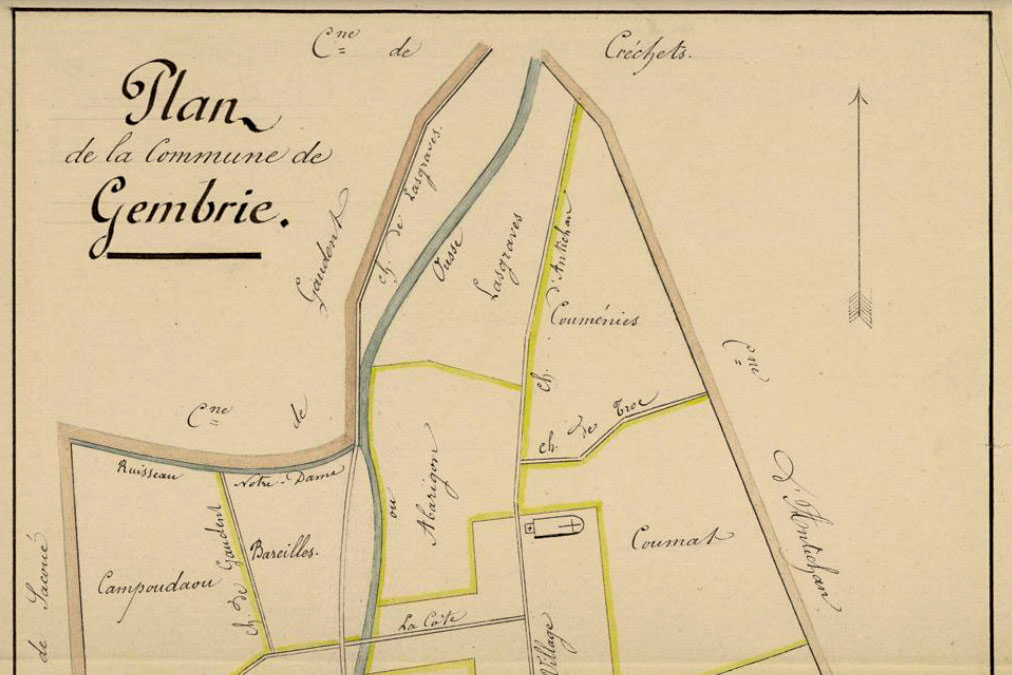 Cne de Créchets.
Plan
de la Commune de
Gembrie.
Gaudent
ch. de Lasgraves.
Ousse
Lasgraves
ch. d'Antichan
Couménies
Cne
Cne de
ch. de Troc
D'Antichan
Ruisseau Notre-Dame
ou
Abarigon
Coumat
ch. de Gaudent
Bareilles.
Campoudaou
de Sacoué
La Côte
Village